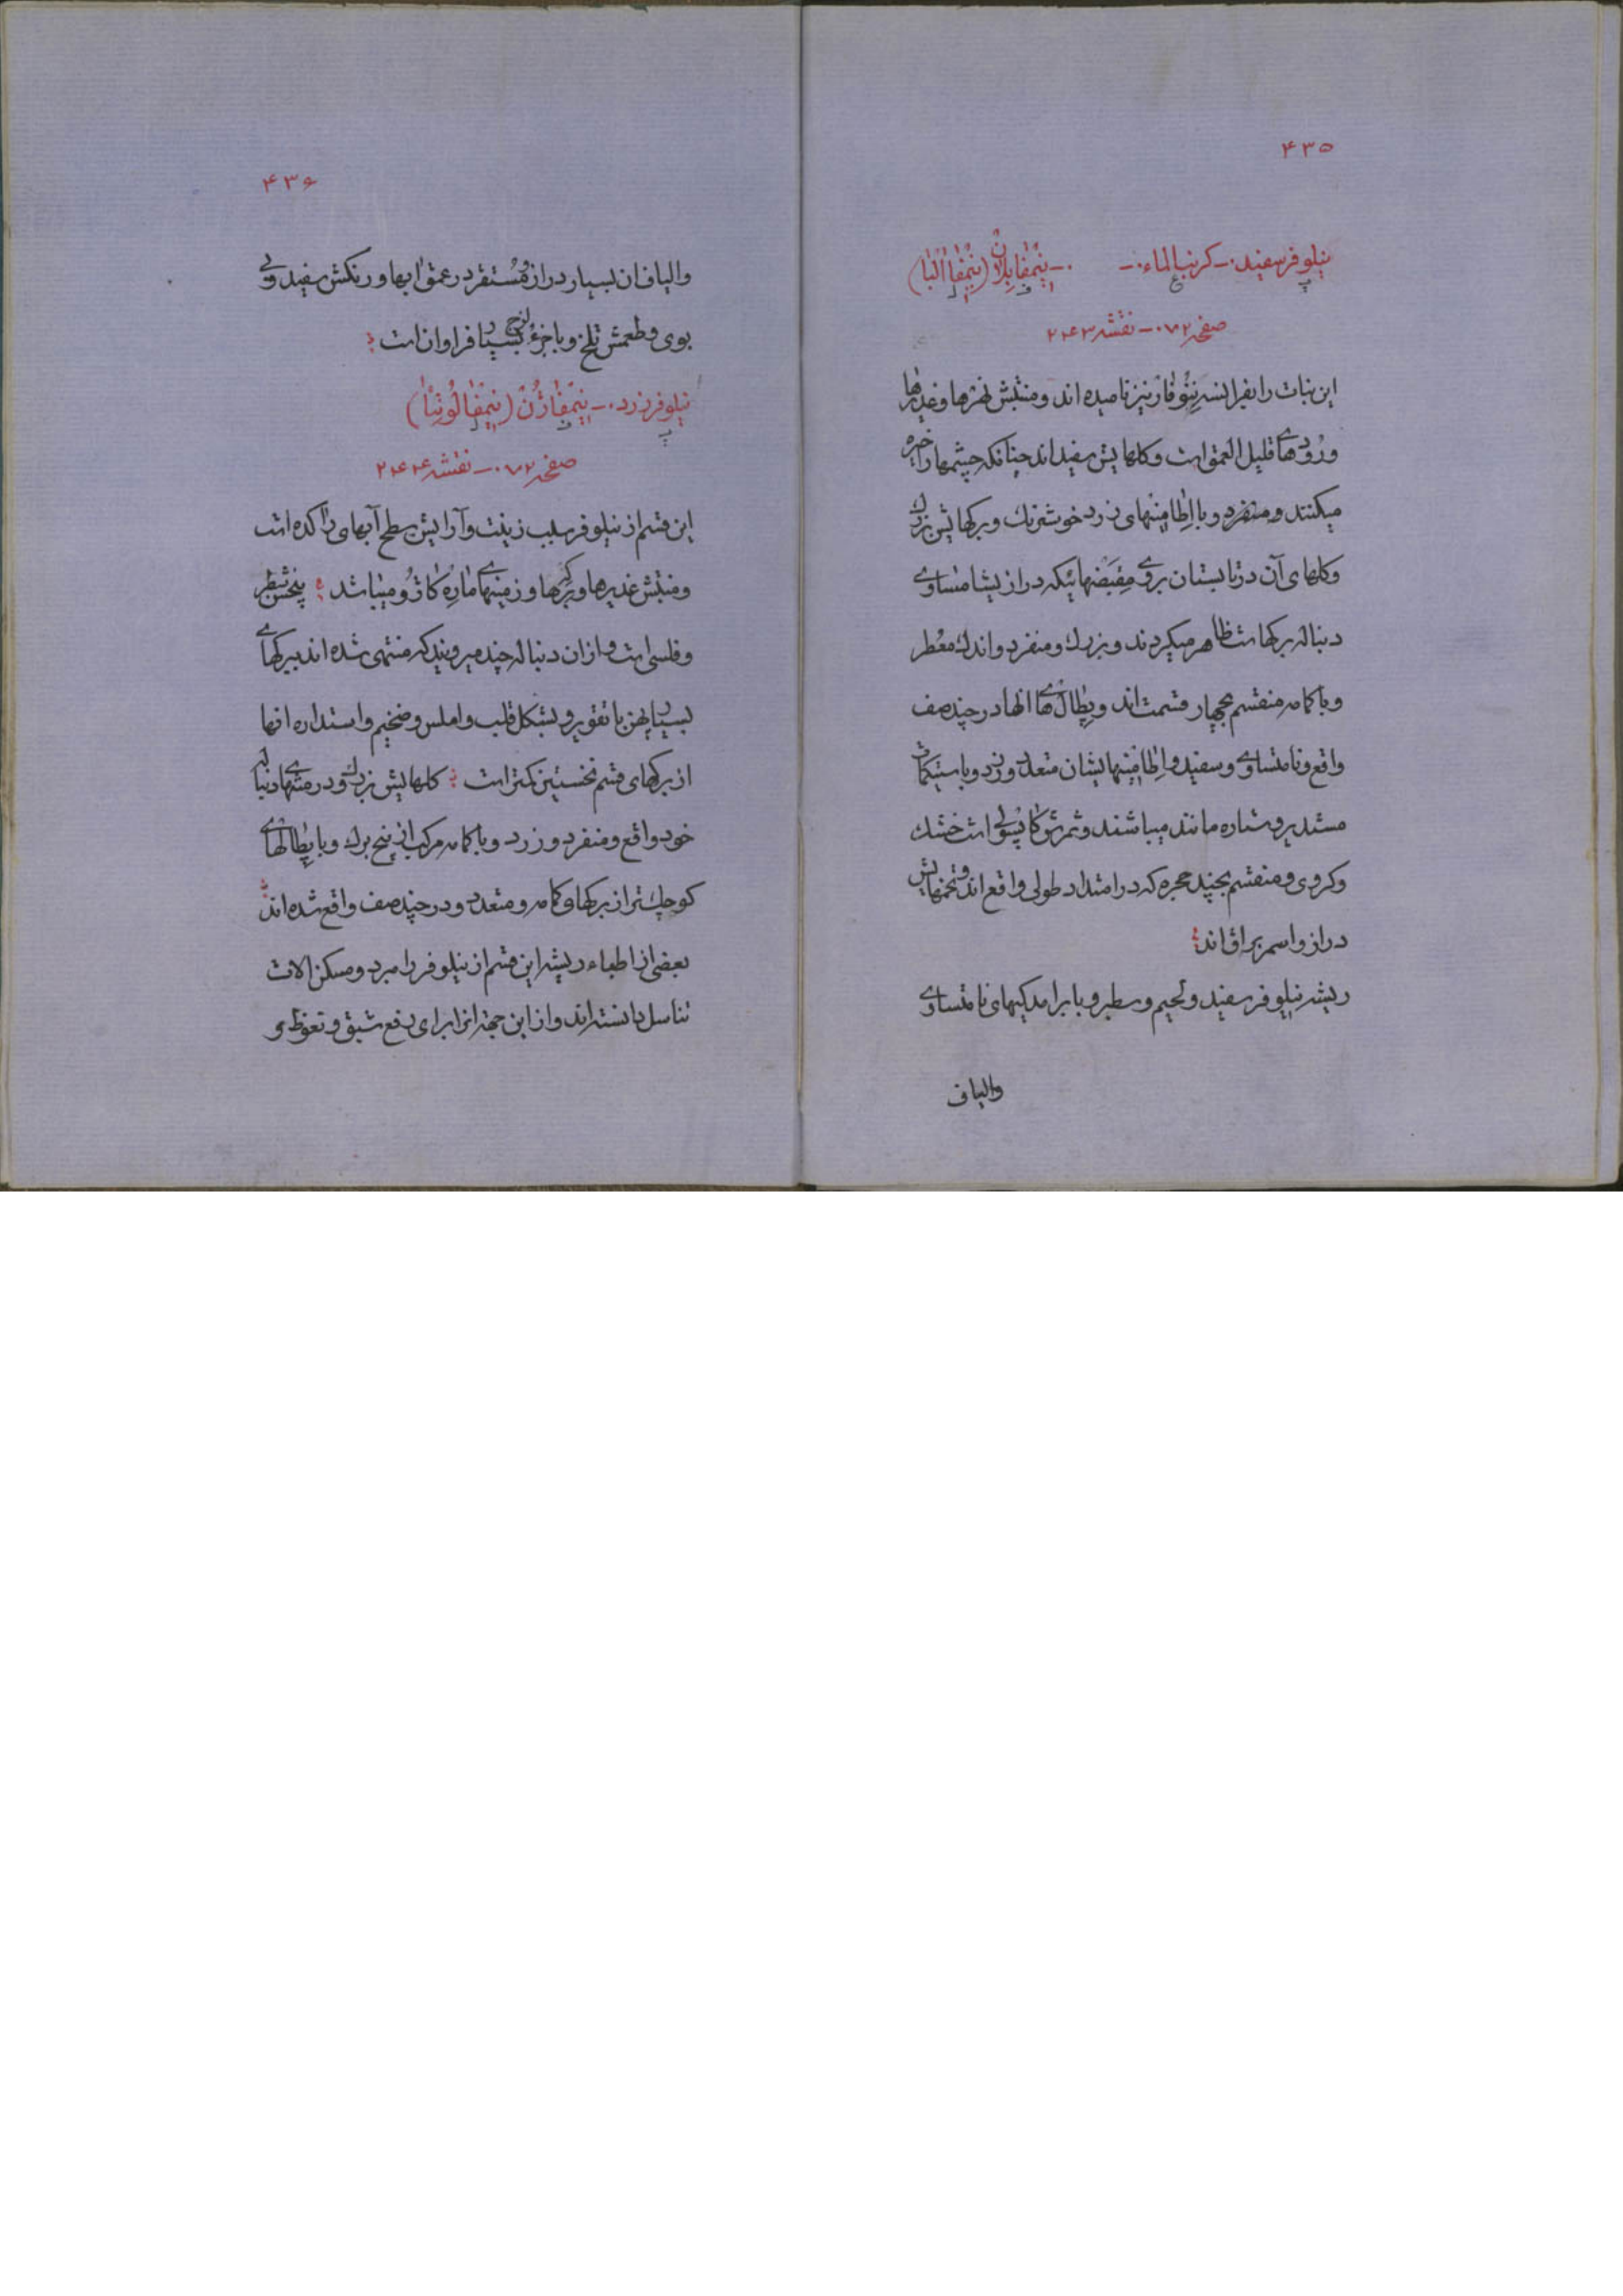 ۴۳۵
نیلوفر سفید .- کرنب الماء .- .- نِنُمفابلان (نِمفاالبا)
صفحه ۰۷۲ .- نقشه ۲۴۳
این نبات را بفرانسه نِنُوفار نیز نامیده اند و منبتش نهرها و غدیرها
و رُودهای قلیل العمق است و کلهایش سفیداند چنانکه چشمها را خیره
میکنند و منفرد و با اِطامِنهای زرد خوشرنك و برکهایش بزرك
و کلهای آن در تابستان بروی مِقبَضهائیکه درازیشا متساوی
دنباله برکهاست ظاهر میکردند و بزرك و منفرد و اندك معُطر
و با کامه منقسم بچهار قسمت اند و پِطالهای انها در چند صف
واقع و نامتساوی و سفید و اِطامِنهایشان متعدد و زرد و با ستیکمات
مستدیر و ستاره مانند میباشند و ثمرش کاپسُولی است خشك
و کروی و منقسم بچند حجره که در امتداد طولی واقع اند و تخمهایش
دراز و اسمر براق اند
ریشه نیلوفر سفید و لحیم و سطبر و با برامدکیهای نامتساوی
والیاف
۴۳۶
والیاف ان بسیار دراز و مُستقر در عمق ابها و رنکش سفید و بی
بوی و طعمش تلخ و با جزء لزج بسیار فراوان است
نیلوفر زرد .- نِنمفاژُن (نِمفالُوتا)
صفحه ۰۷۲ .- نقشه ۲۴۴
این قسم از نیلوفر سبب زینت و آرایش سطح آبهای راکده است
و منبتش غدیرها و برکه‌ها و زمینهای مارِه‌کاژو میباشد بیخش سطبر
و فلسی است و ازان دنباله چند میروید که منتهی شده اند ببرکهای
بسیار پهن با تقویر و بشکل قلب و املس و ضخیم و استداره انها
از برکهای قسم نخستین کمتر است کلهایش بزرك و در منتهای دنباله
خود واقع و منفرد و زرد و با کامه مرکب از پنج برك و با پِطالهای
کوچك‌تر از برکهای کامه و متعدد و در چند صف واقع شده اند
بعضی از اطباء ریشه این قسم از نیلوفر را مبرد و مسکن الات
تناسل دانسته‌اند و از این جهة انرا برای دفع شبق و تعوظ و